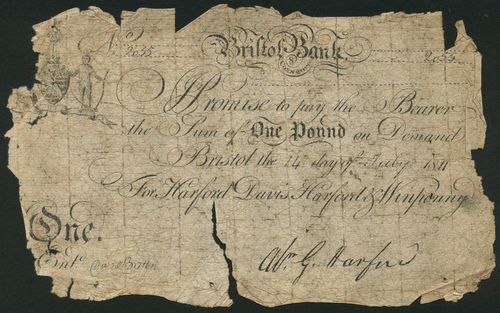 No 2055 Bristol Bank. 2055
I Promise to pay the Bearer
the Sum of One Pound on Demand
Bristol the 14 day of July 1811
For Harford Davis Harford & Winpenny
One.
Entd.
G. Harford